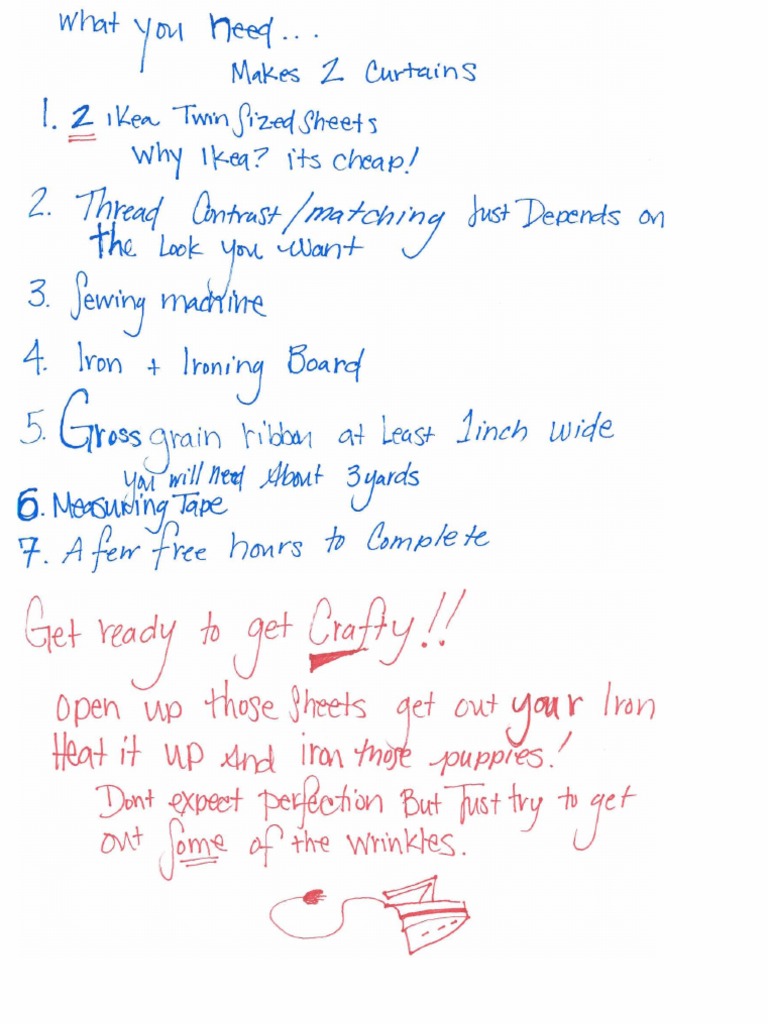 What you need...
Makes 2 Curtains
1. 2 ikea Twin Sized Sheets
Why Ikea? its cheap!
2. Thread Contrast/matching Just Depends on
the Look you want
3. Sewing machine
4. Iron + Ironing Board
5. Gross grain ribbon at Least 1inch wide
you will need About 3 yards
6. Measuring Tape
7. A few free hours to Complete
Get ready to get Crafty!!
Open up those Sheets get out your Iron
Heat it up And iron those puppies!
Dont expect perfection But Just try to get
out Some of the wrinkles.